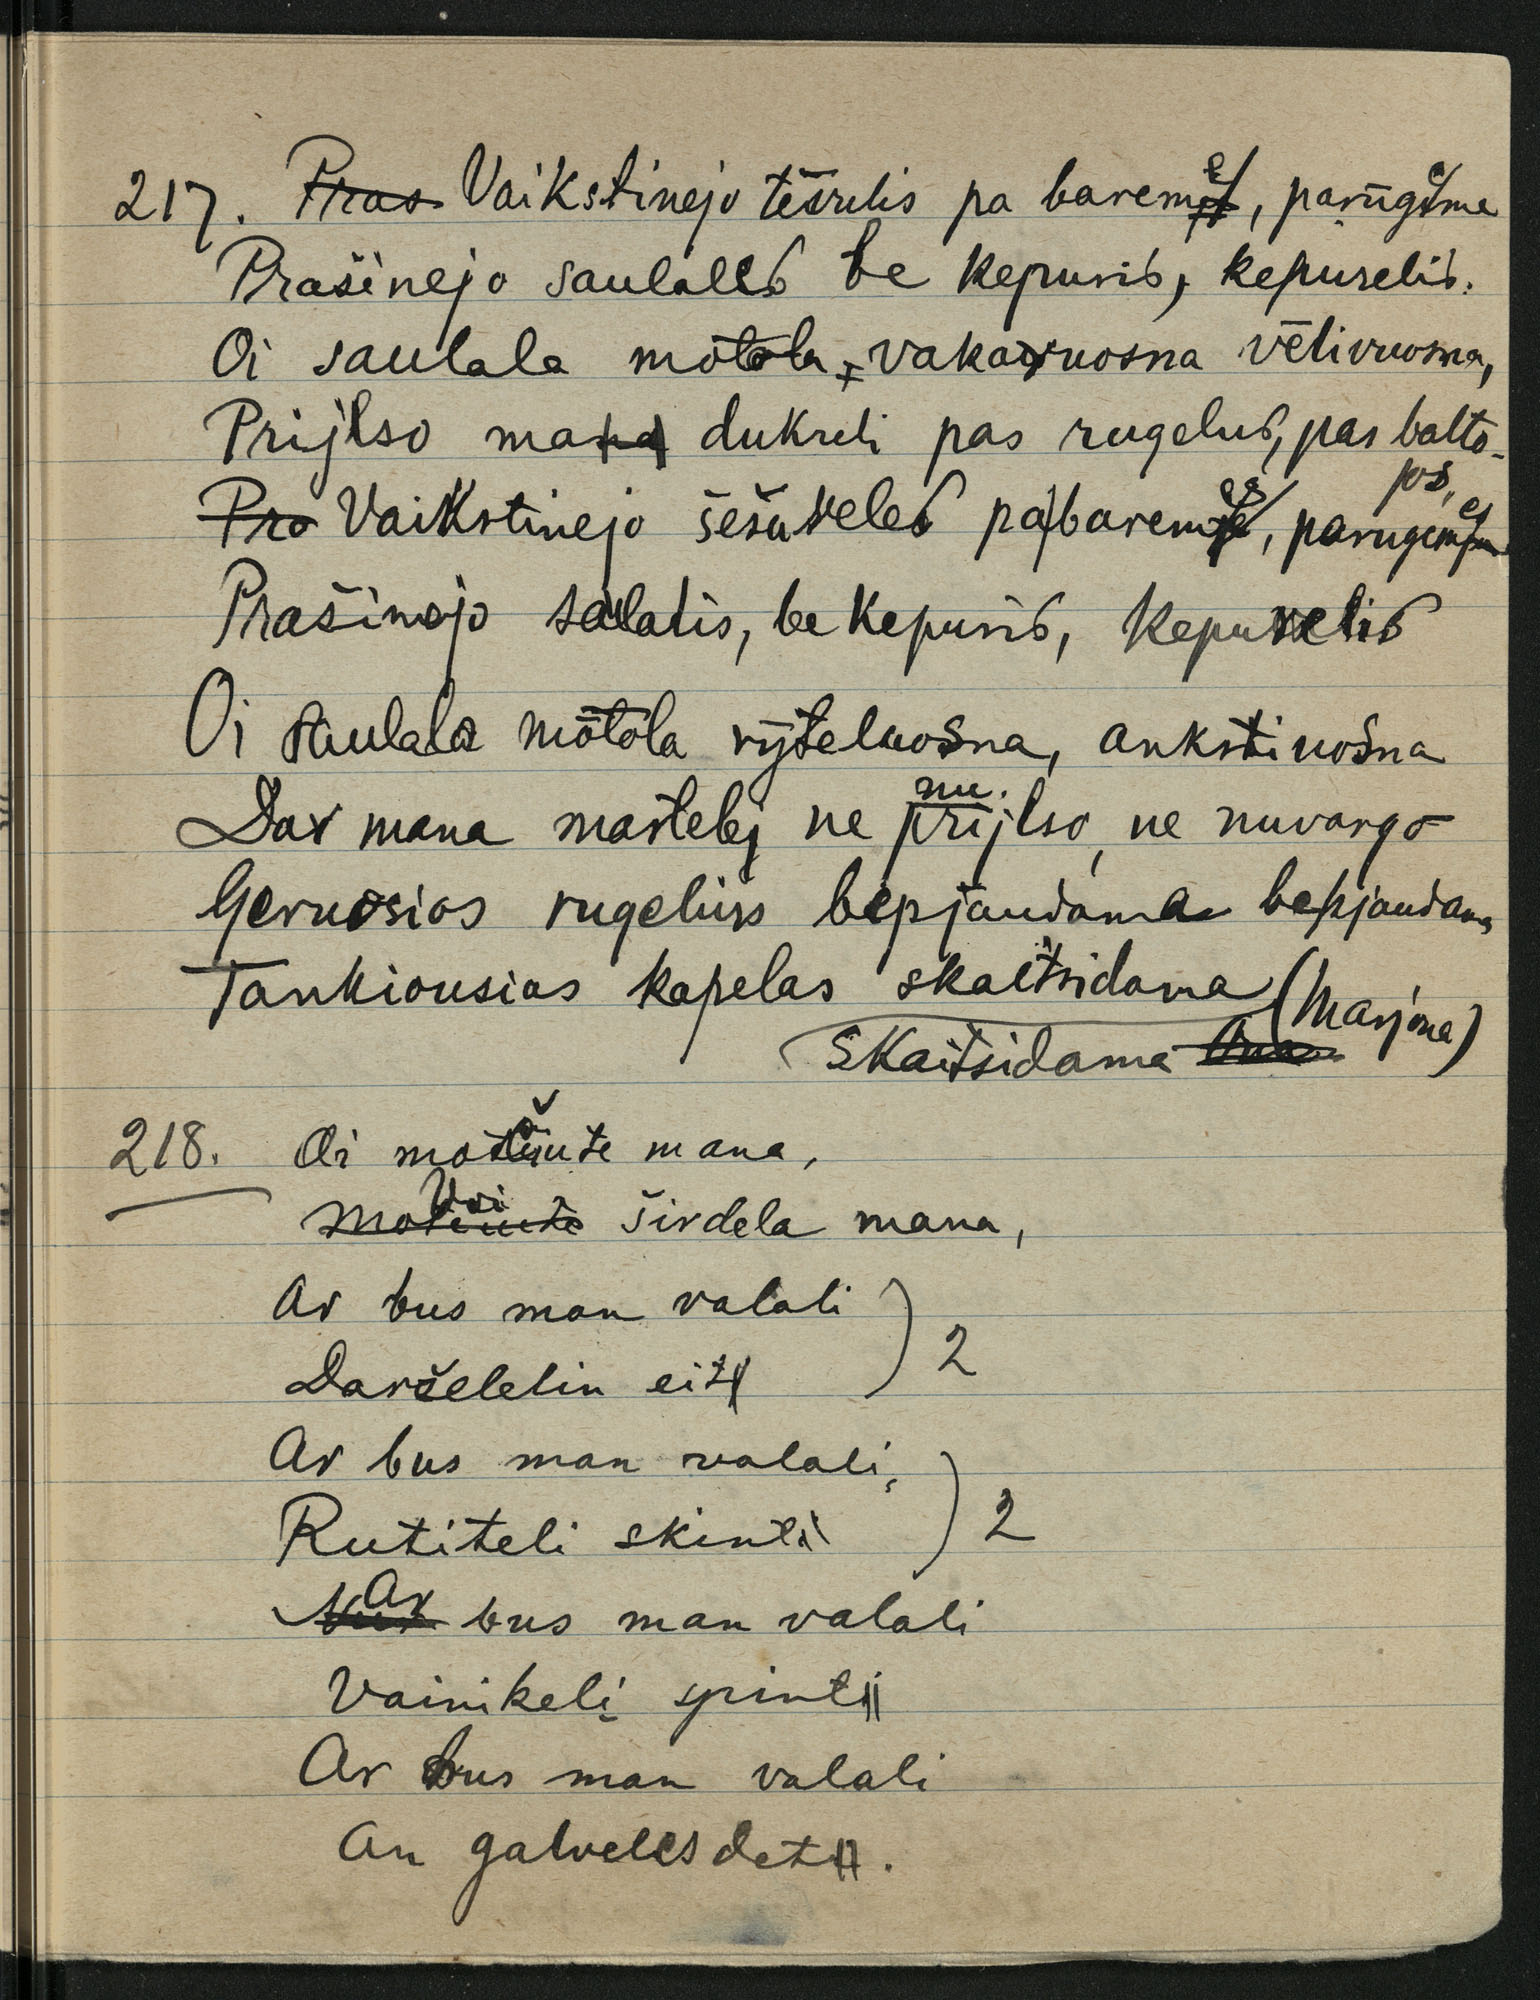 217. Pras Vaikstinejo tėsrelis pa baremes, parūgeme
Prašinejo saulales be kepuris, kepurelis.
Oi saulala mōtola, vakaruosna vēlivuosna,
Prijlso mana dukreli pas rugelus, pas balto-
jos,
Pro Vaikstinejo šešureles pa baremes, parugemes
Prašinejo saulalis, be kepuris, kepurelis
Oi saulala mōtōla rýteluosna, ankstivosna
nu.
Dar mana martelej ne prijlso, ne nuvargo
Geruosios rugelius bepjaudama bepjaudama
Tankiousias kapelas skaitsidama (Marjona)
Skaitsidama
218. Oi motušute mana,
Motinute Voi širdela mana,
Ar bus man valali ) 2
Darželelin eit
Ar bus man valali, ) 2
Rutiteli skinti
Ar bus man valali
Vainikelį spint
Ar bus man valali
An galveles det.